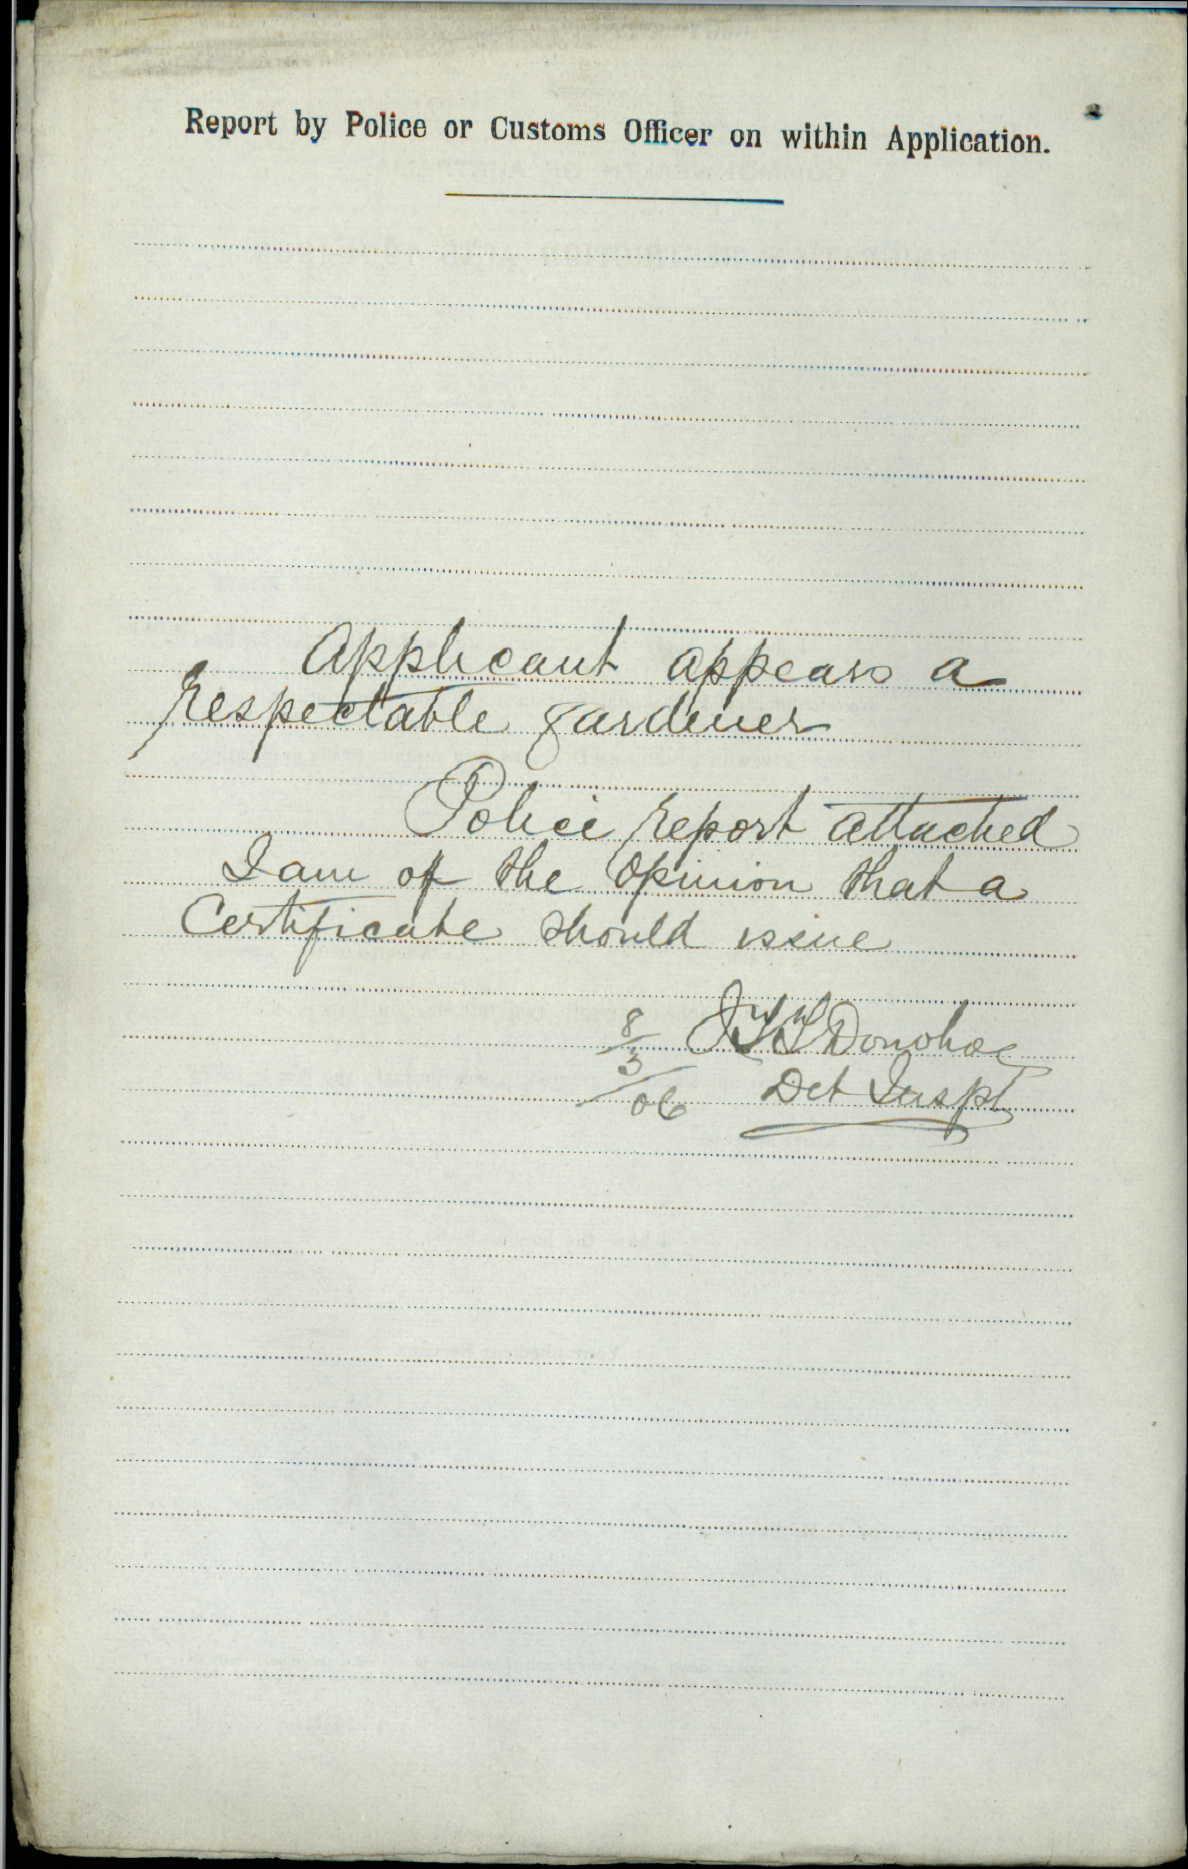 Report by Police or Customs Officer on within Application.
Applicant appears a
respectable gardener
Police report attached
I am of the opinion that a
Certificate should issue
8/3/06 Donohoe
Det Inspt